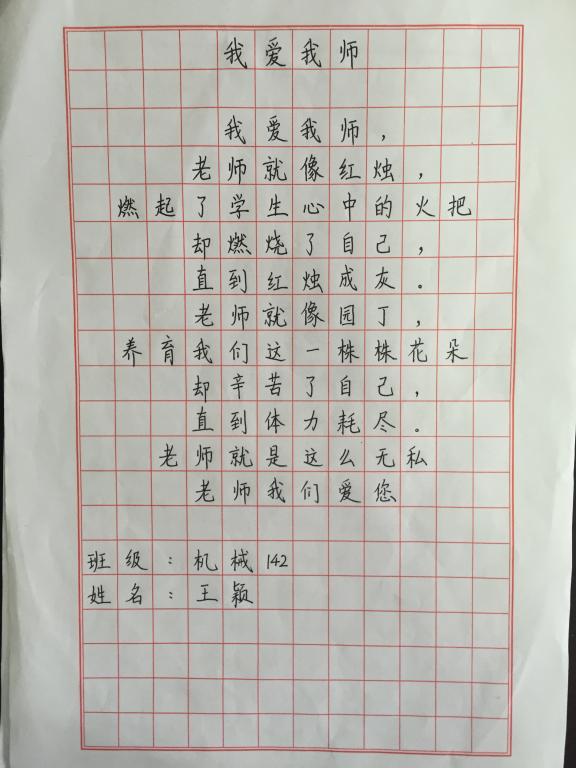 我爱我师
我爱我师，
老师就像红烛，
燃起了学生心中的火把
却燃烧了自己，
直到红烛成灰。
老师就像园丁，
养育我们这一株株花朵
却辛苦了自己，
直到体力耗尽。
老师就是这么无私
老师我们爱您
班级：机械142
姓名：王颖